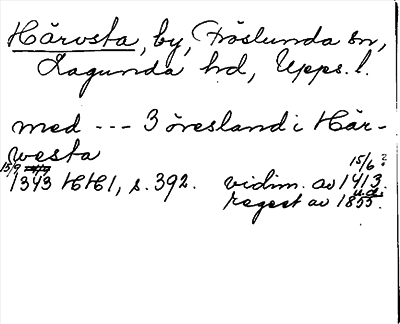 Härvsta, by, Fröslunda sn,
Lagunda hd, Upps. l.
med --- 3 öresland i Här-
vesta
15/9 1343 HH1, s. 392. vidim. av 15/6? 1413.
regest av u.å. 1855.